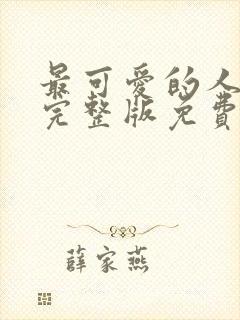 最可爱的人
完整版免费
薛家燕